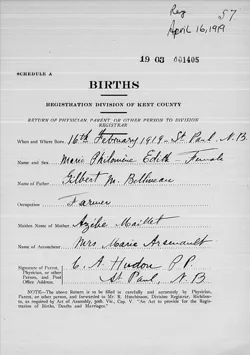 Reg 57
April 16, 1919
19 08 001405
SCHEDULE A
BIRTHS
REGISTRATION DIVISION OF KENT COUNTY
RETURN OF PHYSICIAN, PARENT OR OTHER PERSON TO DIVISION
REGISTRAR
When and Where Born 16th February 1919 - St Paul N.B.
Name and Sex Marie Philomène Edith - Female
Name of Father Gilbert M. Belliveau
Occupation Farmer
Maiden Name of Mother Azibe Maillet
Name of Accoucheur Mrs Marie Arsenault
Signature of Parent,
Physician, or other
Person, and Post
Office Address.
C. A. Hudon P.P.
St Paul, N.B.
NOTE.—The above Return is to be filled in carefully and correctly by Physician,
Parent, or other person, and forwarded to Mr. R. Hutchinson, Division Registrar, Richibucto,
as required by Act of Assembly, Vic., Cap. V "An Act to provide for the Registration
of Births, Deaths and Marriages."